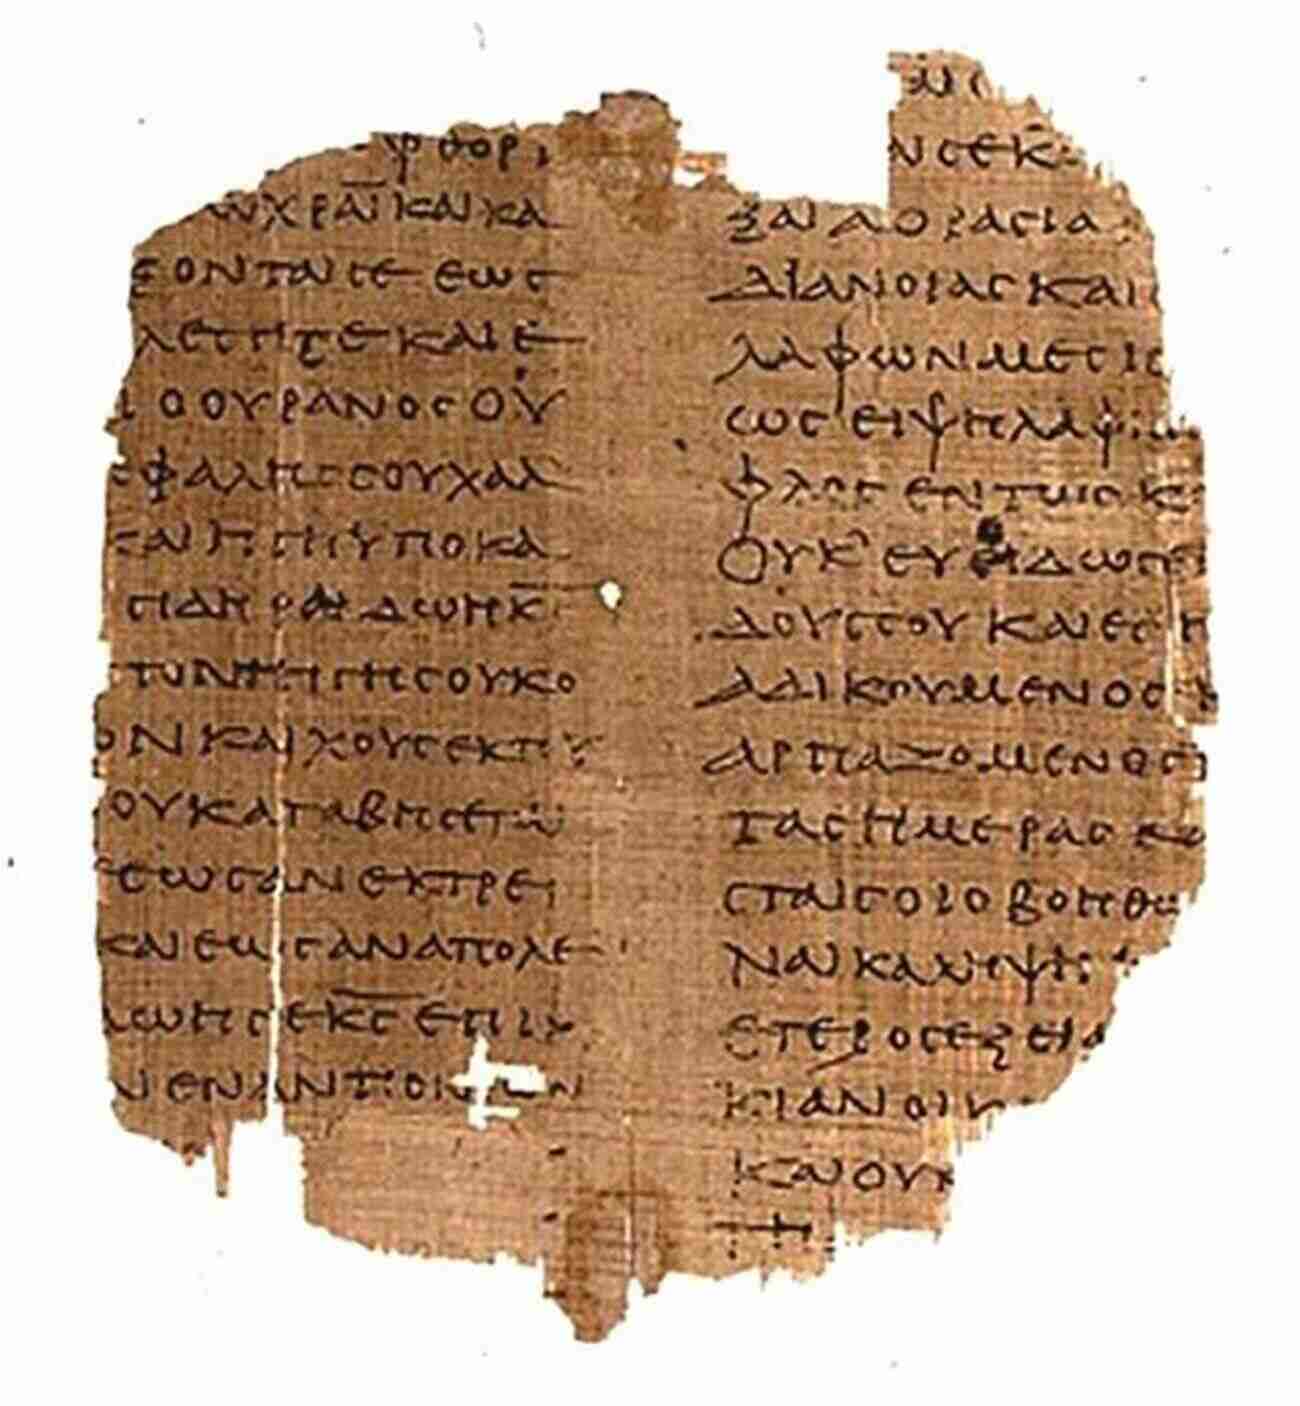 φθορι
ωχραι και κα
ξονται σε εως
λεσητε και ε
ι ο ουρανος ου
εφαλης σου χαλ
και η γη υποκα
σιδηρα δωη κ̅ς̅
τη γη σου κο
ον και χους εκ τ
ου καταβησετ
εως αν εκτρει
και εως αν απολε
δωη σε κ̅ς̅ επι
ν εναντιον
ν σε κ̅ς̅
ξαι αορασια
διανοιας και
λαφων μεση
ωσει ψηλαφ
φλος εν τω σκ
ουκ ευοδωσε
δους σου και εση
αδικουμενος
αρπαζομενος
τας ημερας κα
σται σοι ο βοηθω
ναικα λημψη
ετερος εξει
κιαν οικ
και ουκ